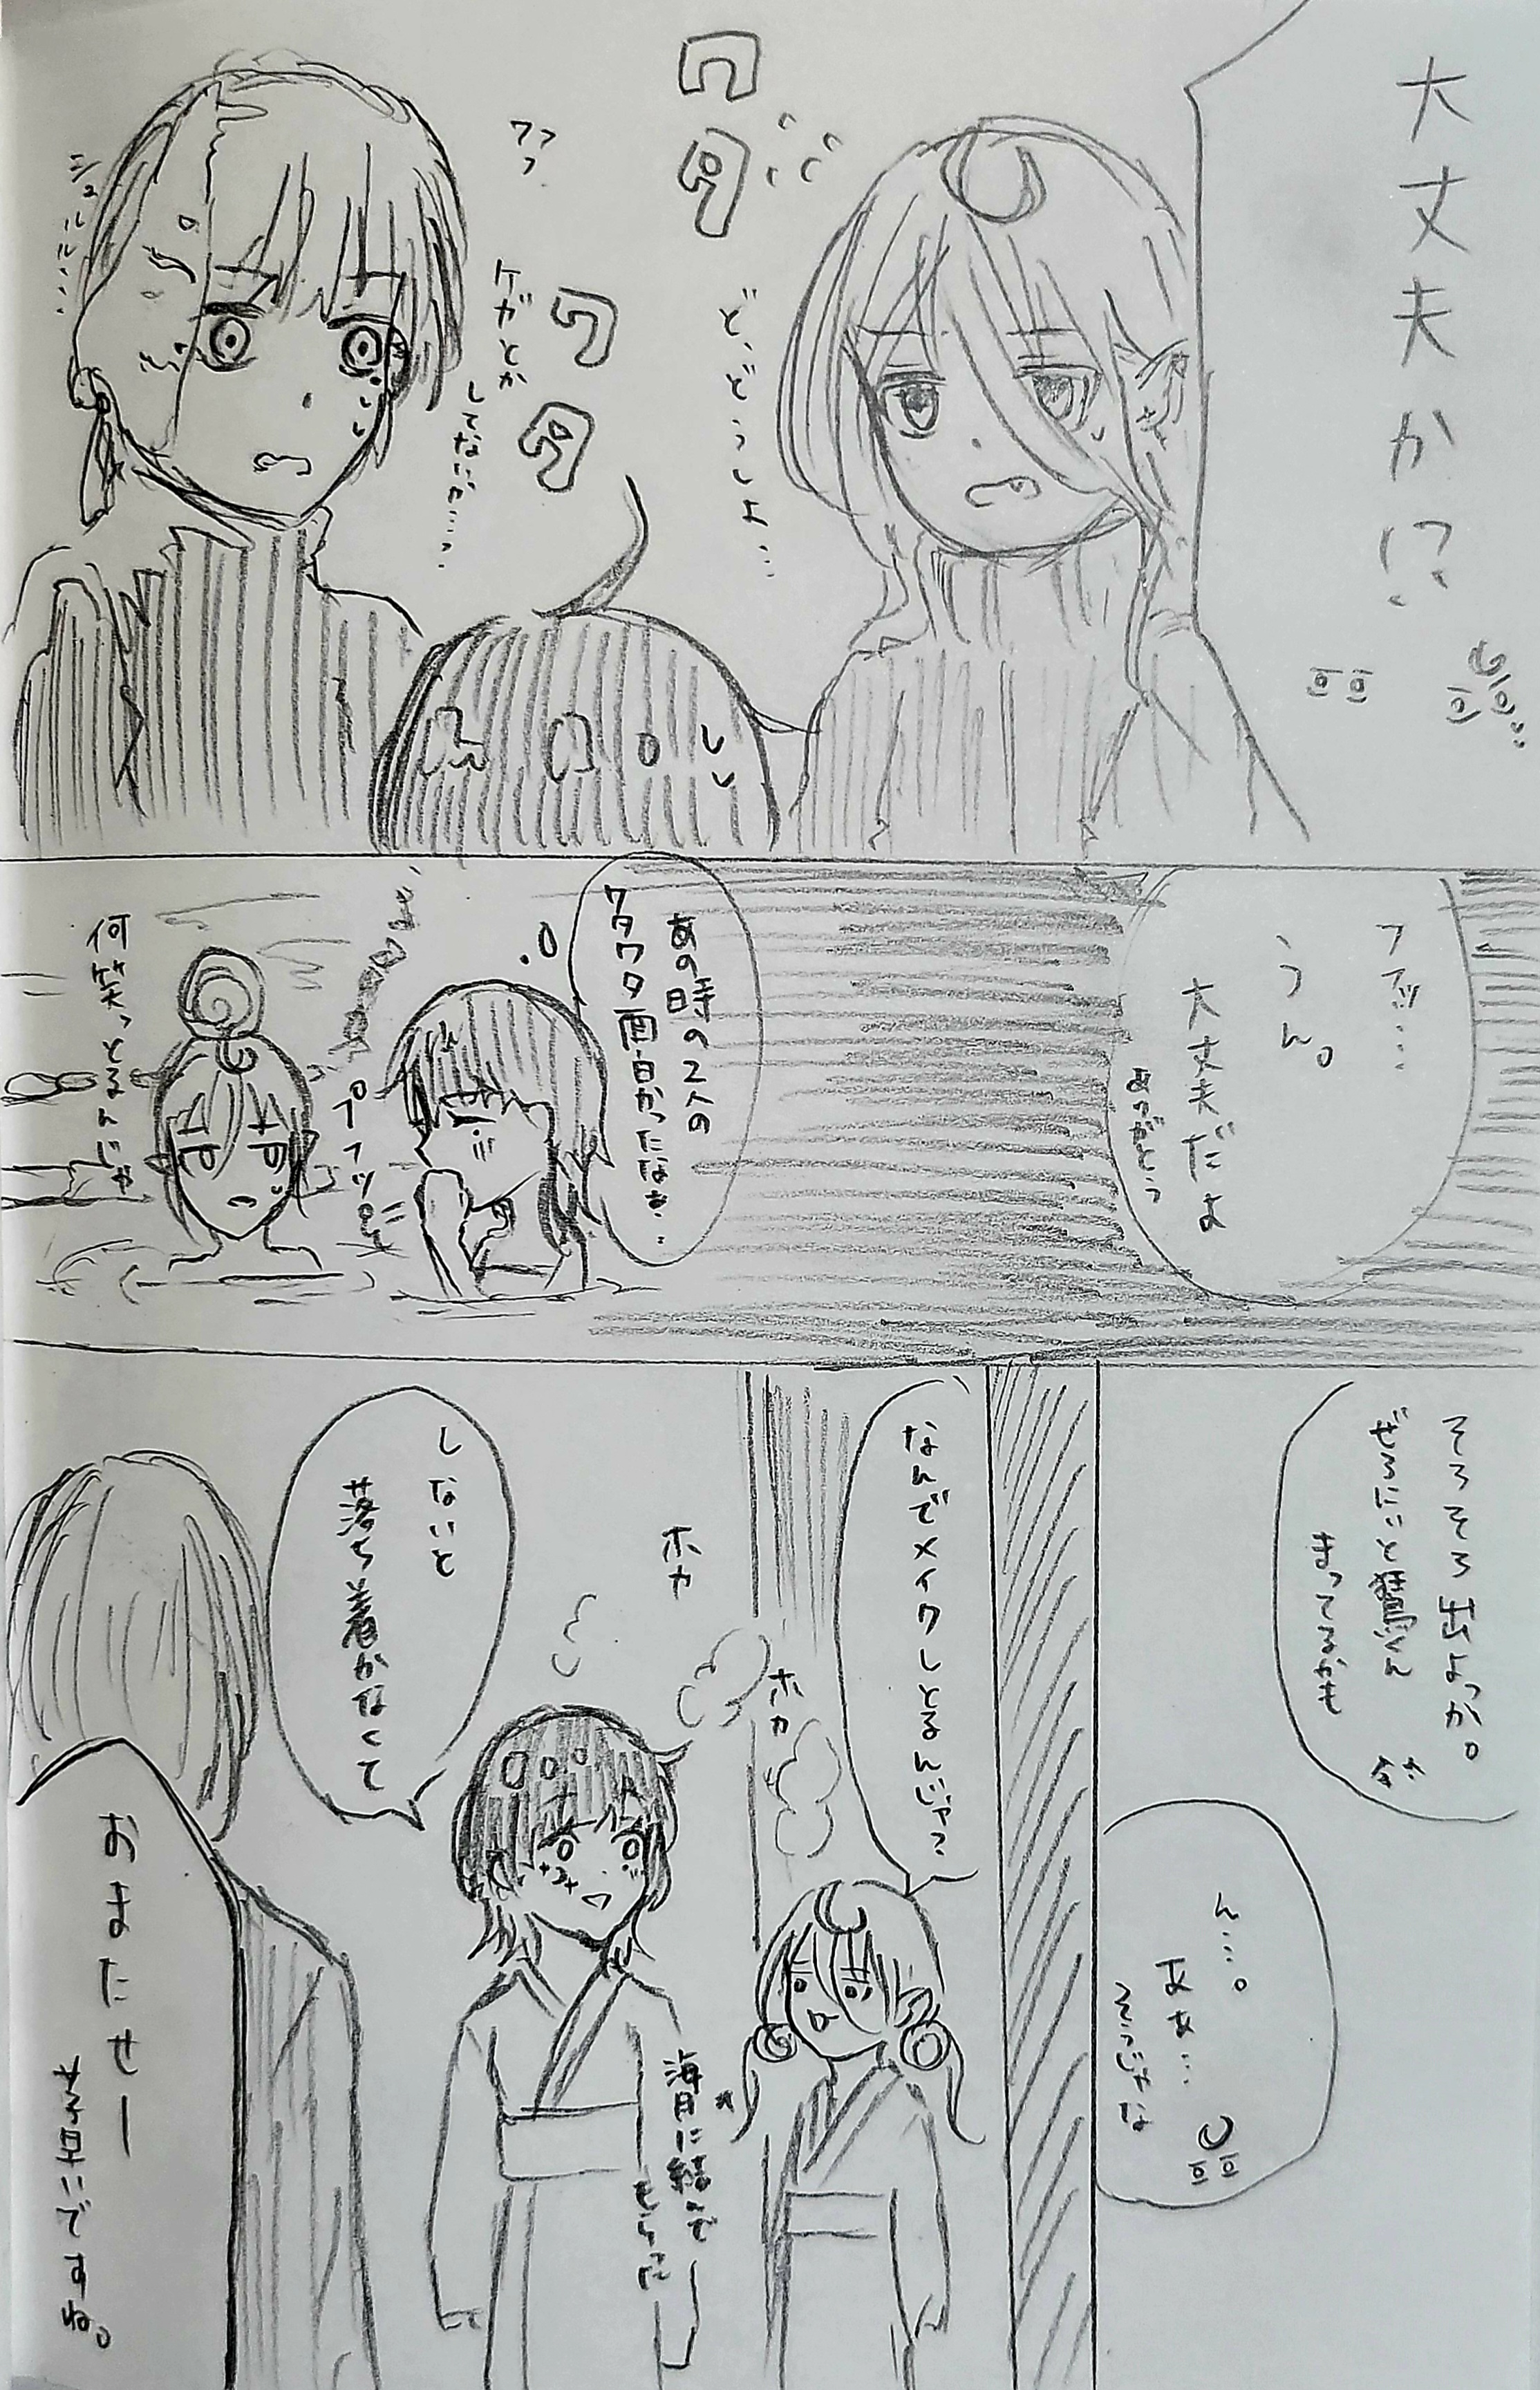 大丈夫か!?
ワタ
ワタ
ど、どうしよ…
ケガとか
してないか……
シュルル…
フッ…
うん。
大丈夫だよ
ありがとう
あの時の2人の
ワタワタ面白かったなぁ…
プフッ
何笑っとるんじゃ
そろそろ出よっか。
ぜろにいと鶯くん
まってるかも
ん…。
あぁ…
そうじゃな
なんでメイクしとるんじゃ?
ホカ
ホカ
しないと
落ち着かなくて
海月に結んで
もらった
おまたせー